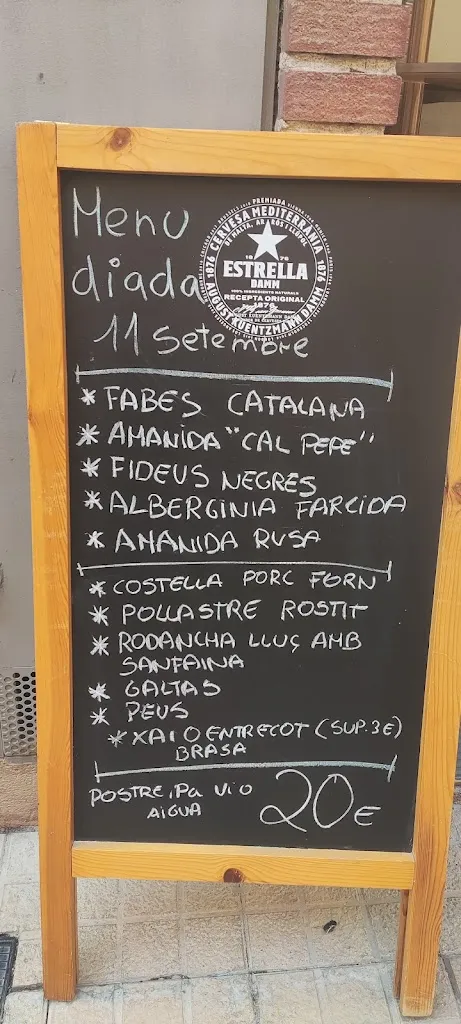 Menu
diada
11 Setembre
PREMIADA
CERVESA MEDITERRÀNIA
DE MALTA, ARRÒS I LLÚPOL
1876
1876
ESTRELLA
DAMM
100% INGREDIENTS NATURALS
RECEPTA ORIGINAL
1876
AUGUST KUENTZMANN DAMM
* FABES CATALANA
* AMANIDA "CAL PEPE"
* FIDEUS NEGRES
* ALBERGINIA FARCIDA
* AMANIDA RUSA
* COSTELLA PORC FORN
* POLLASTRE ROSTIT
* RODANCHA LLUÇ AMB
SANFAINA
* GALTAS
* PEUS
* XAI O ENTRECOT (SUP. 3E)
BRASA
POSTRE, PA VI O
AIGUA
20E